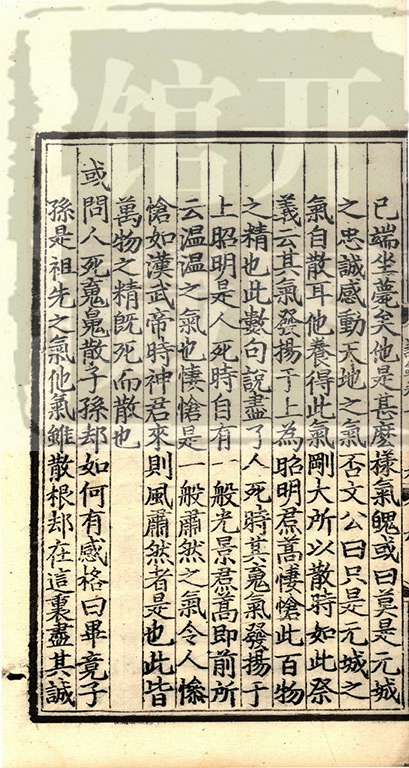 已端坐薨矣他是甚麽樣氣魄或曰莫是元城
之忠誠感動天地之氣否文公曰只是元城之
氣自散耳他養得此氣剛大所以散時如此祭
義云其氣發揚于上為昭明焄蒿悽愴此百物
之精也此數句說盡了人死時其䰟氣發揚于
上昭明是人死時自有一般光景焄蒿即前所
云温温之氣也悽愴是一般肅然之氣令人慘
愴如漢武帝時神君來則風肅然者是也此皆
萬物之精既死而散也
或問人死䰟魄散子孫却如何有感格曰畢竟子
孫是祖先之氣他氣雖散根却在這裏盡其誠
開
館